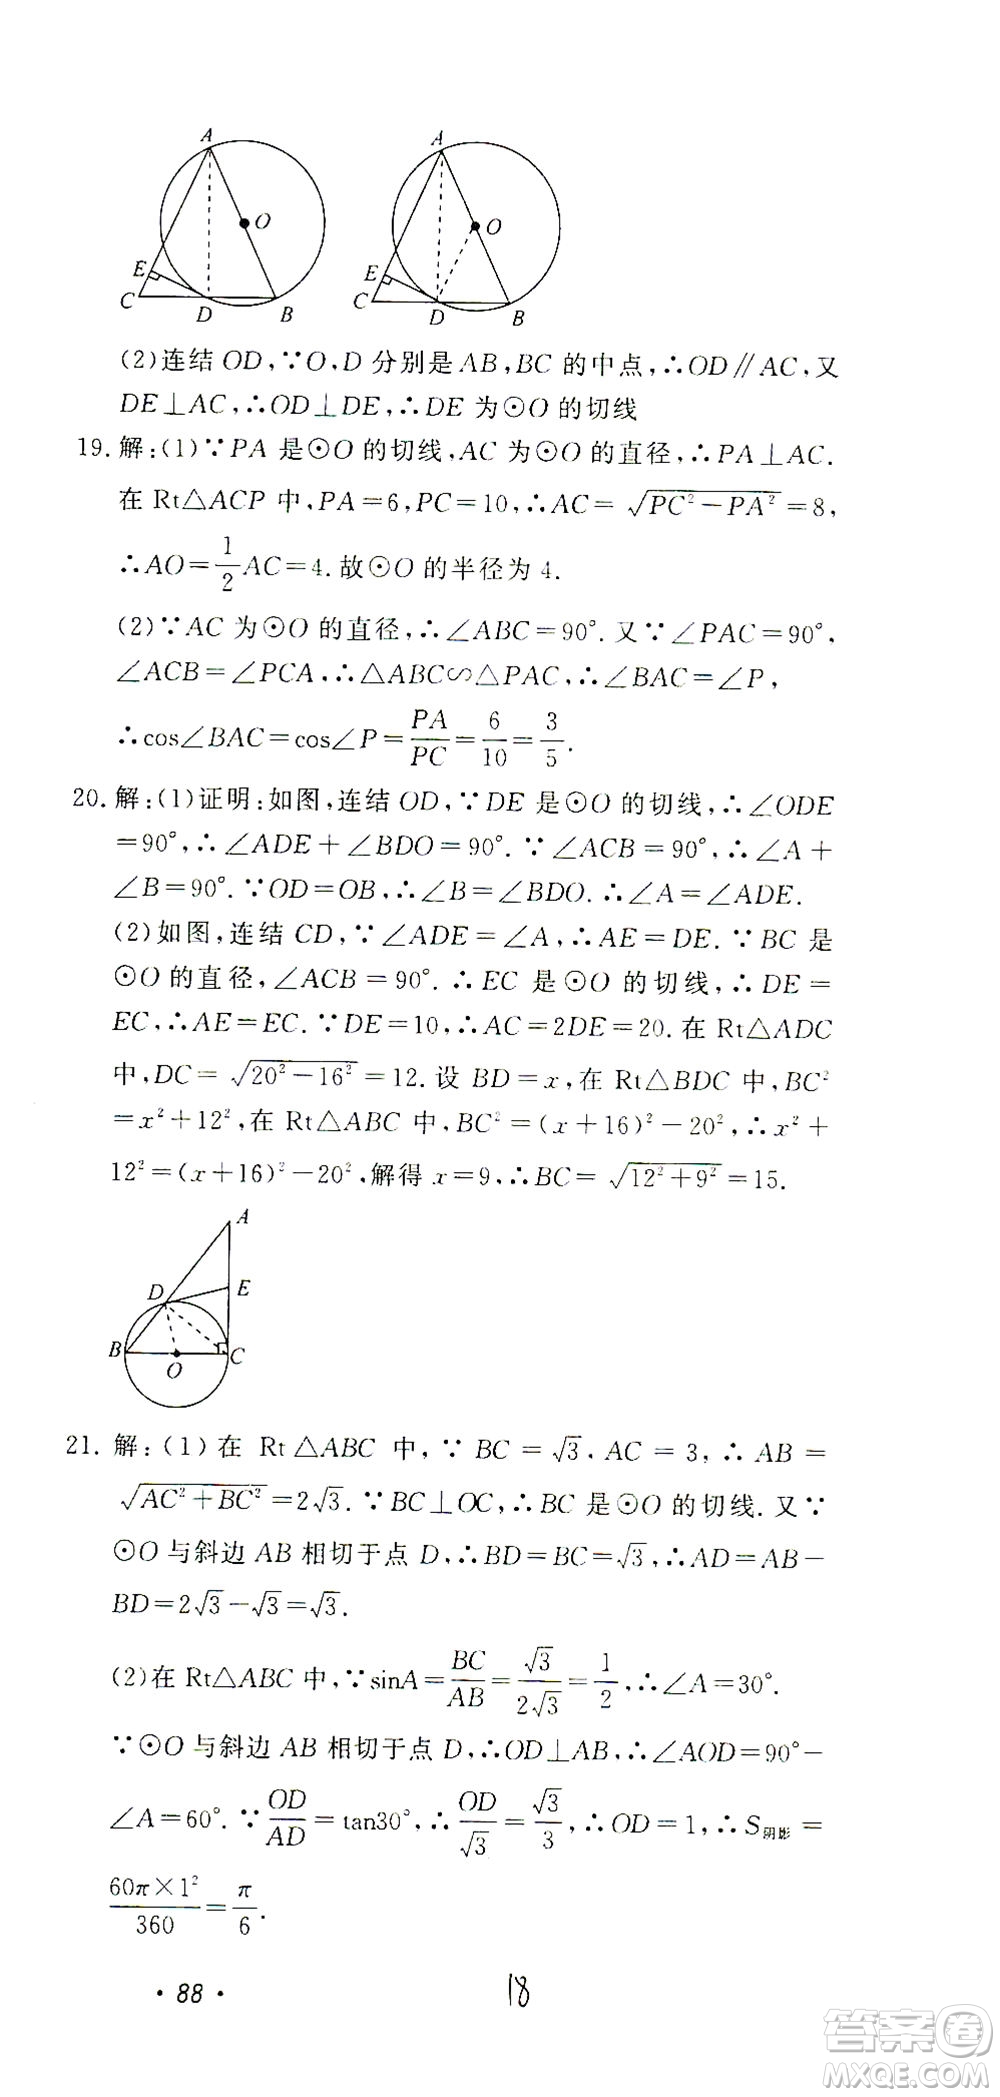 A
O
E
C
D
B
A
O
E
C
D
B
(2)连结 OD,∵O,D 分别是 AB,BC 的中点,∴OD∥AC,又
DE⊥AC,∴OD⊥DE,∴DE 为⊙O 的切线
19. 解:(1)∵PA 是⊙O 的切线,AC 为⊙O 的直径,∴PA⊥AC.
在 Rt△ACP 中,PA=6,PC=10,∴AC=√(PC²-PA²)=8,
∴AO=1/2 AC=4.故⊙O 的半径为 4.
(2)∵AC 为⊙O 的直径,∴∠ABC=90°.又∵∠PAC=90°,
∠ACB=∠PCA,∴△ABC∽△PAC,∴∠BAC=∠P,
∴cos∠BAC=cos∠P=PA/PC=6/10=3/5.
20. 解:(1)证明:如图,连结 OD,∵DE 是⊙O 的切线,∴∠ODE
=90°,∴∠ADE+∠BDO=90°.∵∠ACB=90°,∴∠A+
∠B=90°.∵OD=OB,∴∠B=∠BDO.∴∠A=∠ADE.
(2)如图,连结 CD,∵∠ADE=∠A,∴AE=DE.∵BC 是
⊙O 的直径,∠ACB=90°.∴EC 是⊙O 的切线,∴DE=
EC,∴AE=EC.∵DE=10,∴AC=2DE=20.在 Rt△ADC
中,DC=√(20²-16²)=12.设 BD=x,在 Rt△BDC 中,BC²
=x²+12²,在 Rt△ABC 中,BC²=(x+16)²-20²,∴x²+
12²=(x+16)²-20²,解得 x=9,∴BC=√(12²+9²)=15.
A
D
E
B
O
C
21. 解:(1)在 Rt△ABC 中,∵BC=√3.AC=3,∴AB=
√(AC²+BC²)=2√3.∵BC⊥OC,∴BC 是⊙O 的切线.又∵
⊙O 与斜边 AB 相切于点 D,∴BD=BC=√3,∴AD=AB-
BD=2√3-√3=√3.
(2)在 Rt△ABC 中,∵sinA=BC/AB=√3/2√3=1/2,∴∠A=30°.
∵⊙O 与斜边 AB 相切于点 D,∴OD⊥AB,∴∠AOD=90°-
∠A=60°.∵OD/AD=tan30°,∴OD/√3=√3/3,∴OD=1,∴S阴影=
60π×1²/360=π/6.
· 88 ·
18
答案卷
MXQE.COM